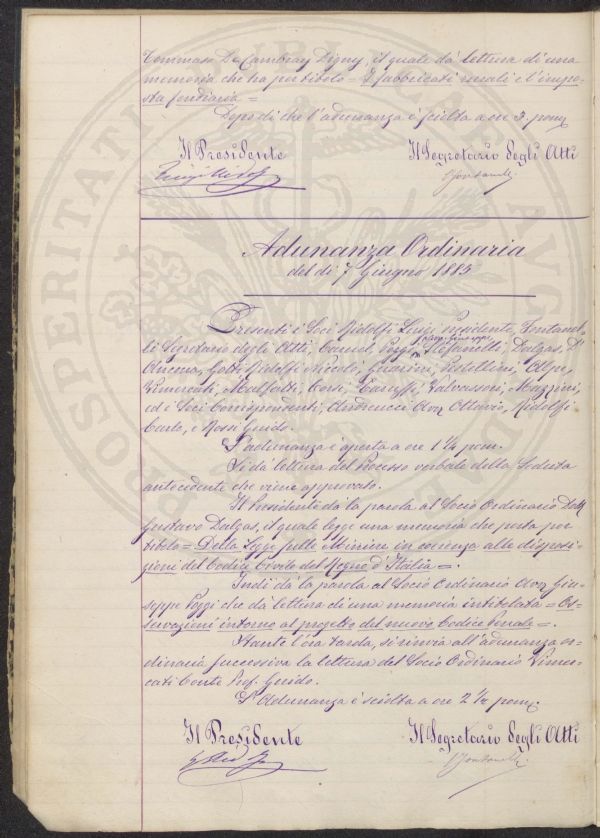 Tommaso De Cambray Digny, il quale dà lettura di una
memoria che ha per titolo = I fabbricati rurali e l'impo-
sta fondiaria =
Dopo di che l'adunanza è sciolta a ore 3. pom.
Il Presidente Il Segretario degli Atti
Luigi Ridolfi LFontanelli
Adunanza Ordinaria
del dì 7 Giugno 1885
Presenti i Soci Ridolfi Luigi Presidente, Fontanel-
li Segretario degli Atti, Caruel, Poggi Giuseppe, Stefanelli, Dalgas, D'
Ancona, Ridolfi Niccolò, Alpe,
Vimercati, Malfatti, Corsi, Valvassori, Mazzini,
ed i Soci Corrispondenti, Andreucci Avv Ottavio, Ridolfi
Carlo, e Rossi Guido.
L'adunanza è aperta a ore 1 ¼ pom.
Si dà lettura del Processo verbale della Seduta
antecedente che viene approvato.
Il Presidente dà la parola al Socio Ordinario Dott
Gustavo Dalgas, il quale legge una memoria che porta per
titolo = Della Legge sulle Miniere in coerenza alle disposi-
zioni del Codice Civile del Regno d'Italia =.
Indi dà la parola al Socio Ordinario Avv Giu-
seppe Poggi che dà lettura di una memoria intitolata = Os-
servazioni intorno al progetto del nuovo Codice Penale =.
Stante l'ora tarda, si rinvia all'adunanza or-
dinaria successiva la lettura del Socio Ordinario Vimer-
cati Conte Prof. Guido.
L'Adunanza è sciolta a ore 2 ½ pom.
Il Presidente Il Segretario degli Atti
LFontanelli
PROSPERITATI PUBLICAE AUG